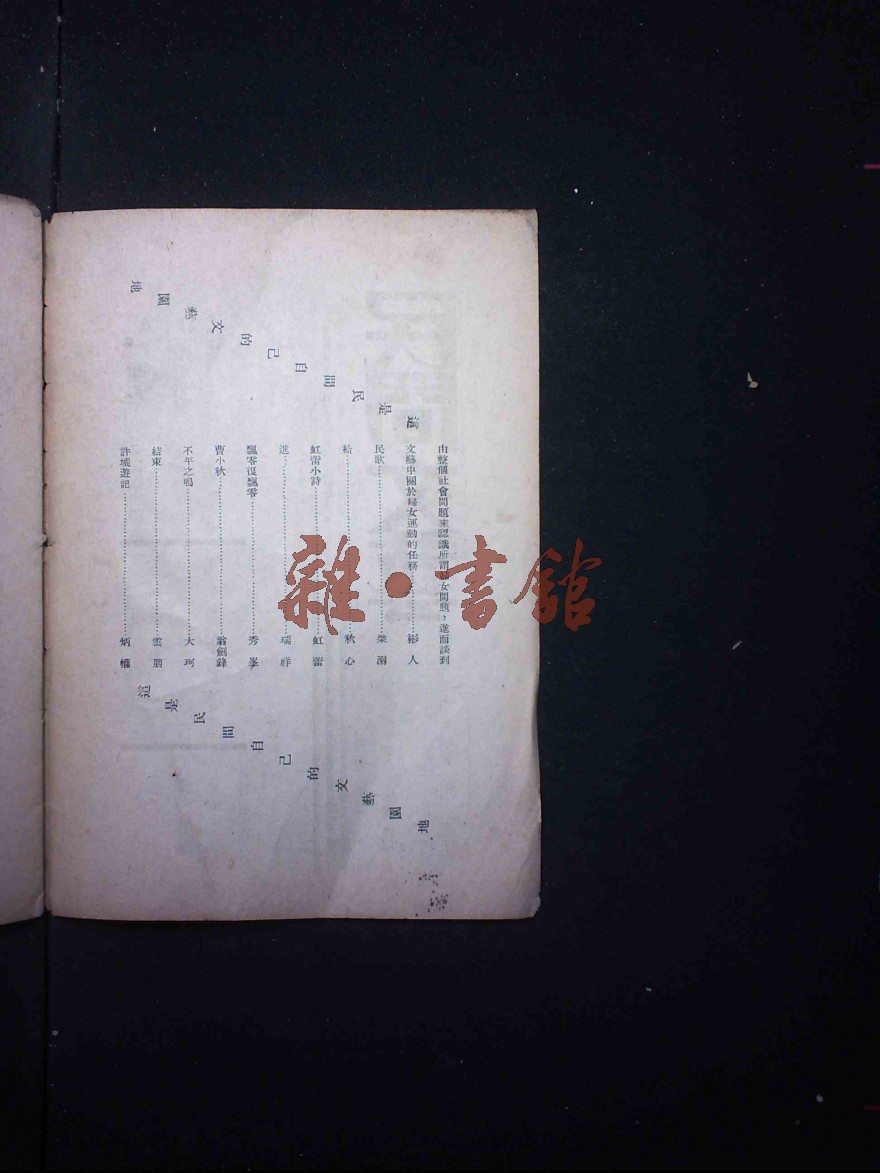 這是民間自己的文藝園地
由整個社會問題來認識所謂婦女問題，進而談到
文藝中關於婦女運動的任務……彬人
民歌……
給……秋心
虹雷小詩……虹雷
進……瑞祥
飄零復飄零……秀峯
曹小秋……翁劍鋒
不平之鳴……大珂
結束……雲朋
許城遊記……炳
這是民間自己的文藝園地
雜·書館